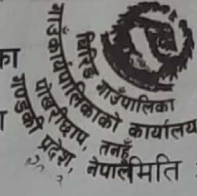 घिरिङ गाउँपालिका
गाउँकार्यपालिकाको कार्यालय
पोखरीछाप, तनहुँ
गण्डकी प्रदेश, नेपाल
का
मिति :